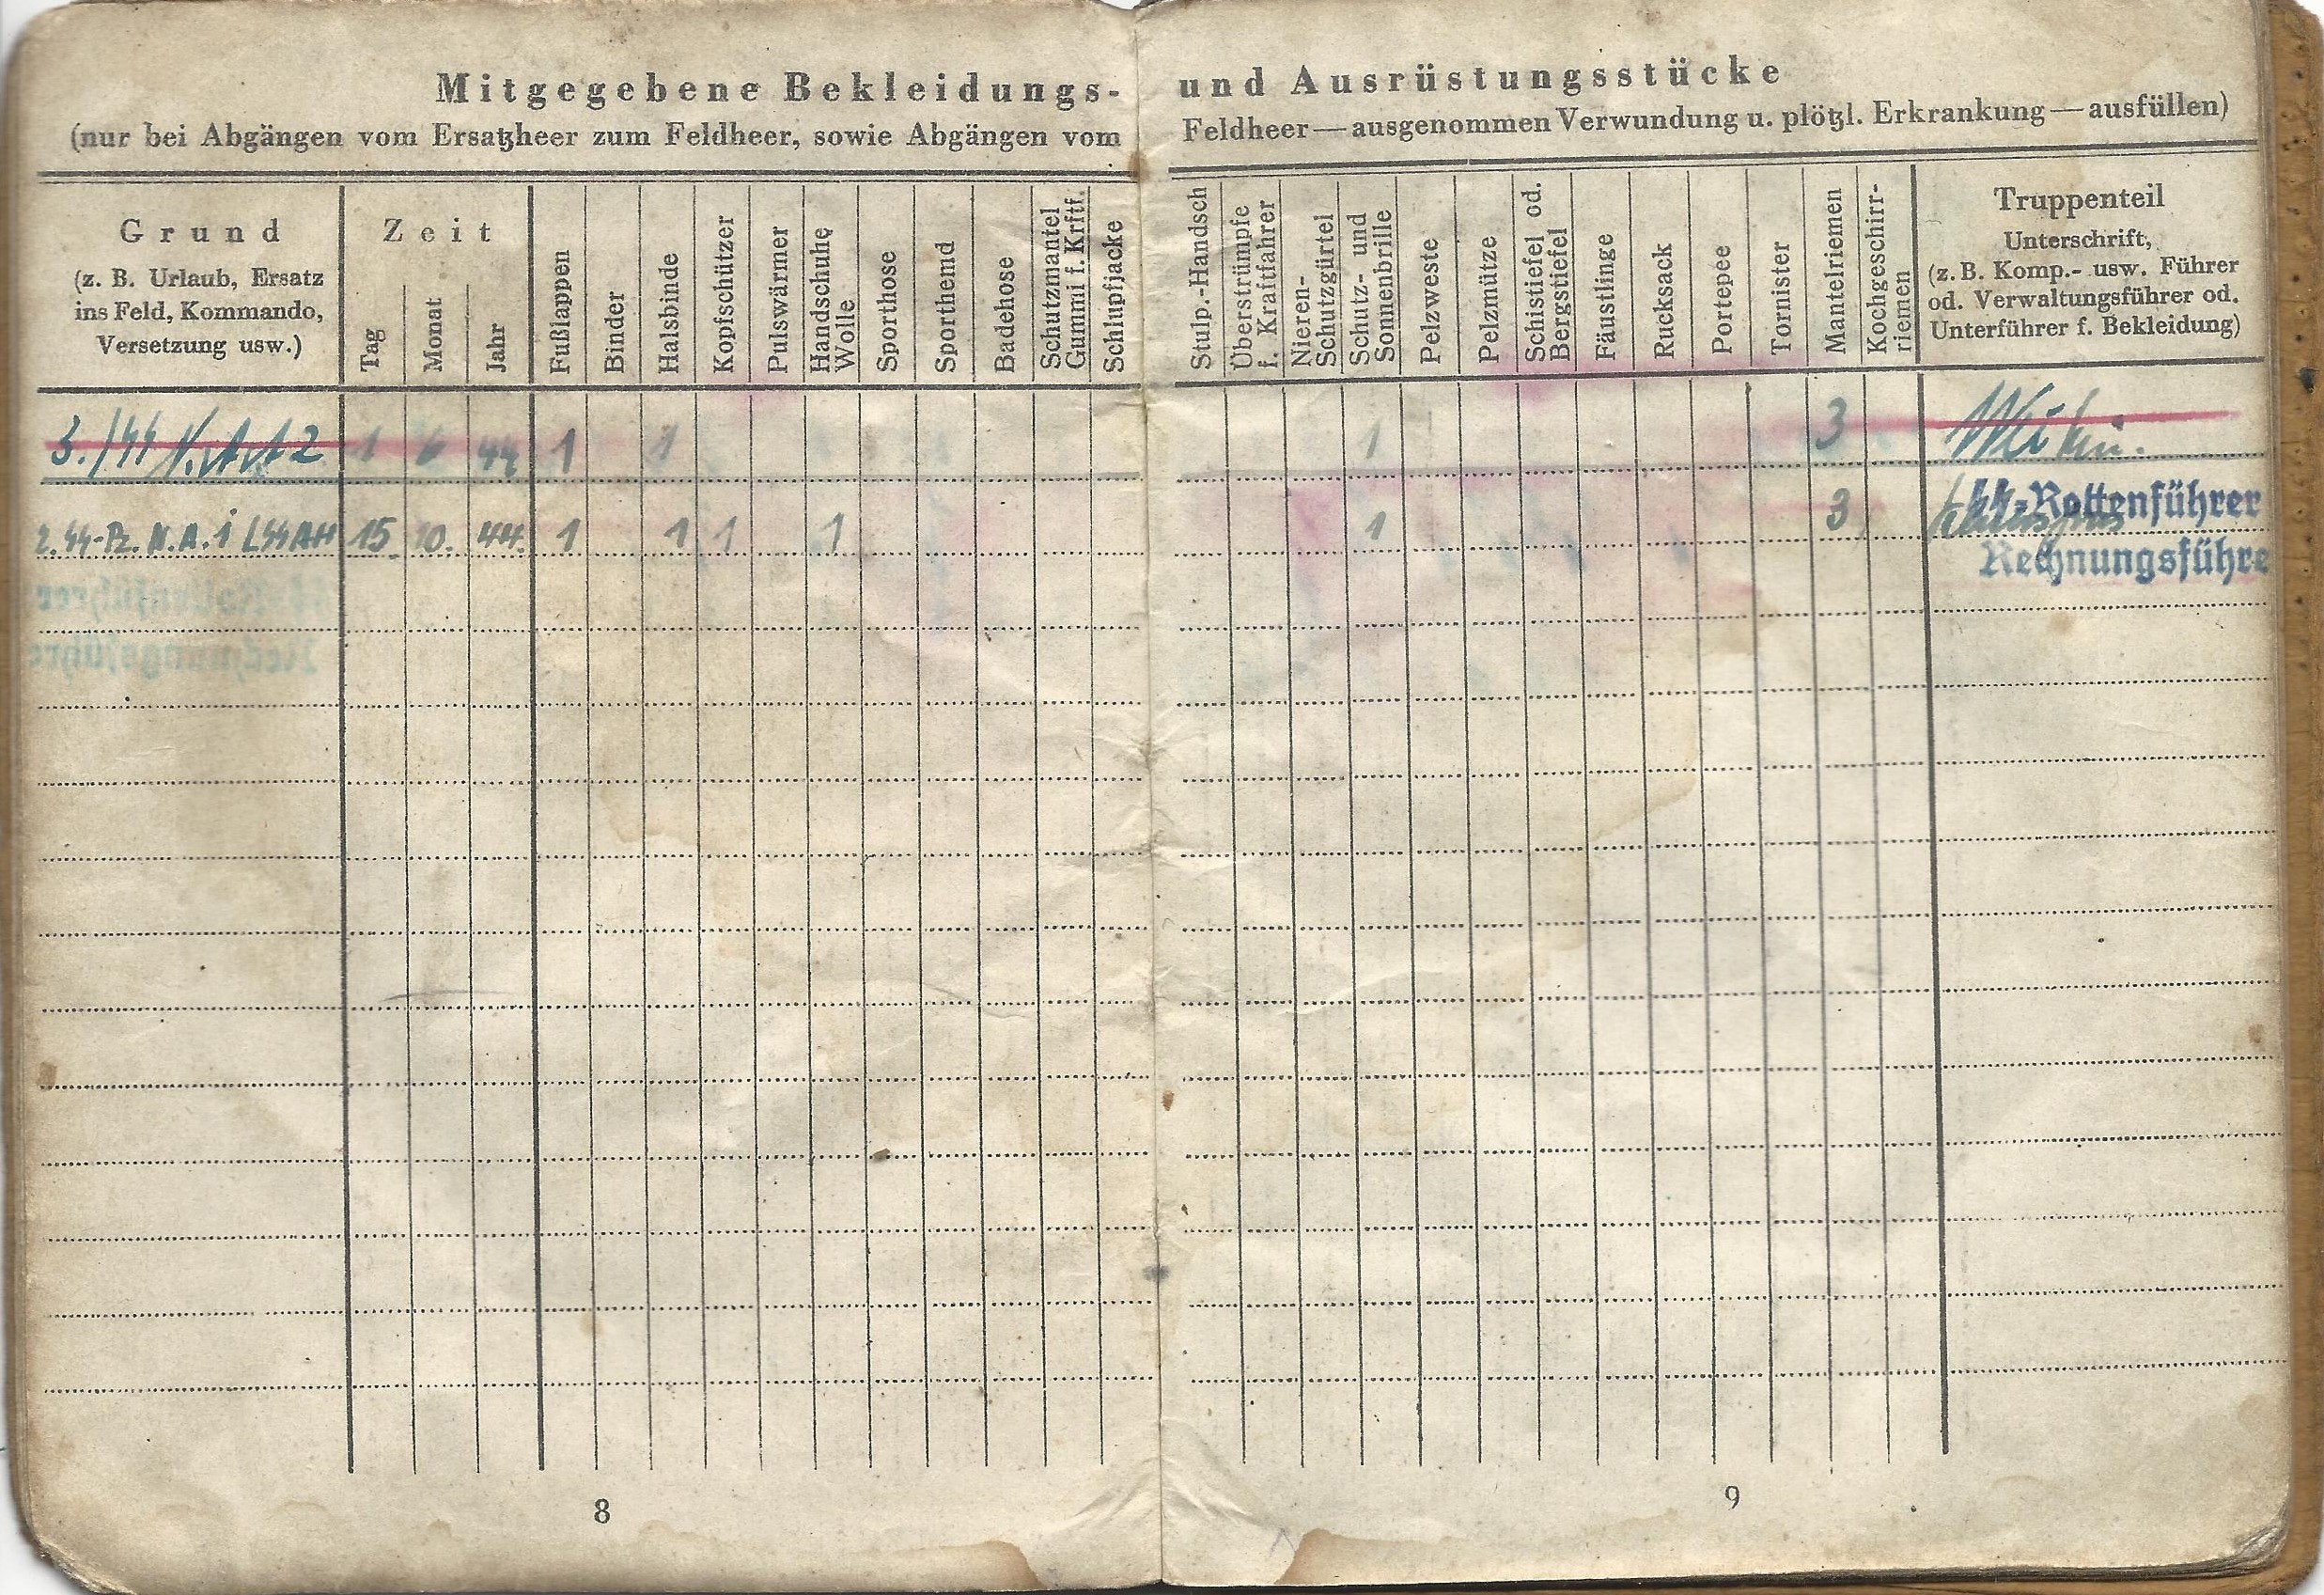 Mitgegebene Bekleidungs- und Ausrüstungsstücke
(nur bei Abgängen vom Ersatzheer zum Feldheer, sowie Abgängen vom Feldheer — ausgenommen Verwundung u. plötzl. Erkrankung — ausfüllen)
Grund
(z. B. Urlaub, Ersatz
ins Feld, Kommando,
Versetzung usw.)
Zeit
Tag
Monat
Jahr
Fußlappen
Binder
Halsbinde
Kopfschützer
Pulswärmer
Handschuhe
Wolle
Sporthose
Sporthemd
Badehose
Schutzmantel
Gummi f. Krftf.
Schlupfjacke
Stulp.-Handsch
Überstrümpfe
f. Kraftfahrer
Nieren-
Schutzgürtel
Schutz- und
Sonnenbrille
Pelzweste
Pelzmütze
Schistiefel od.
Bergstiefel
Fäustlinge
Rucksack
Portepee
Tornister
Mantelriemen
Kochgeschirr-
riemen
Truppenteil
Unterschrift,
(z. B. Komp.- usw. Führer
od. Verwaltungsführer od.
Unterführer f. Bekleidung)
3./SS N.A.A 2 1 6 44 1 1 1 3
2. SS-Pz. N.A. 1 LSSAH 15. 10. 44. 1 1 1 1 1 3
SS-Rottenführer
Rechnungsführe
8
9